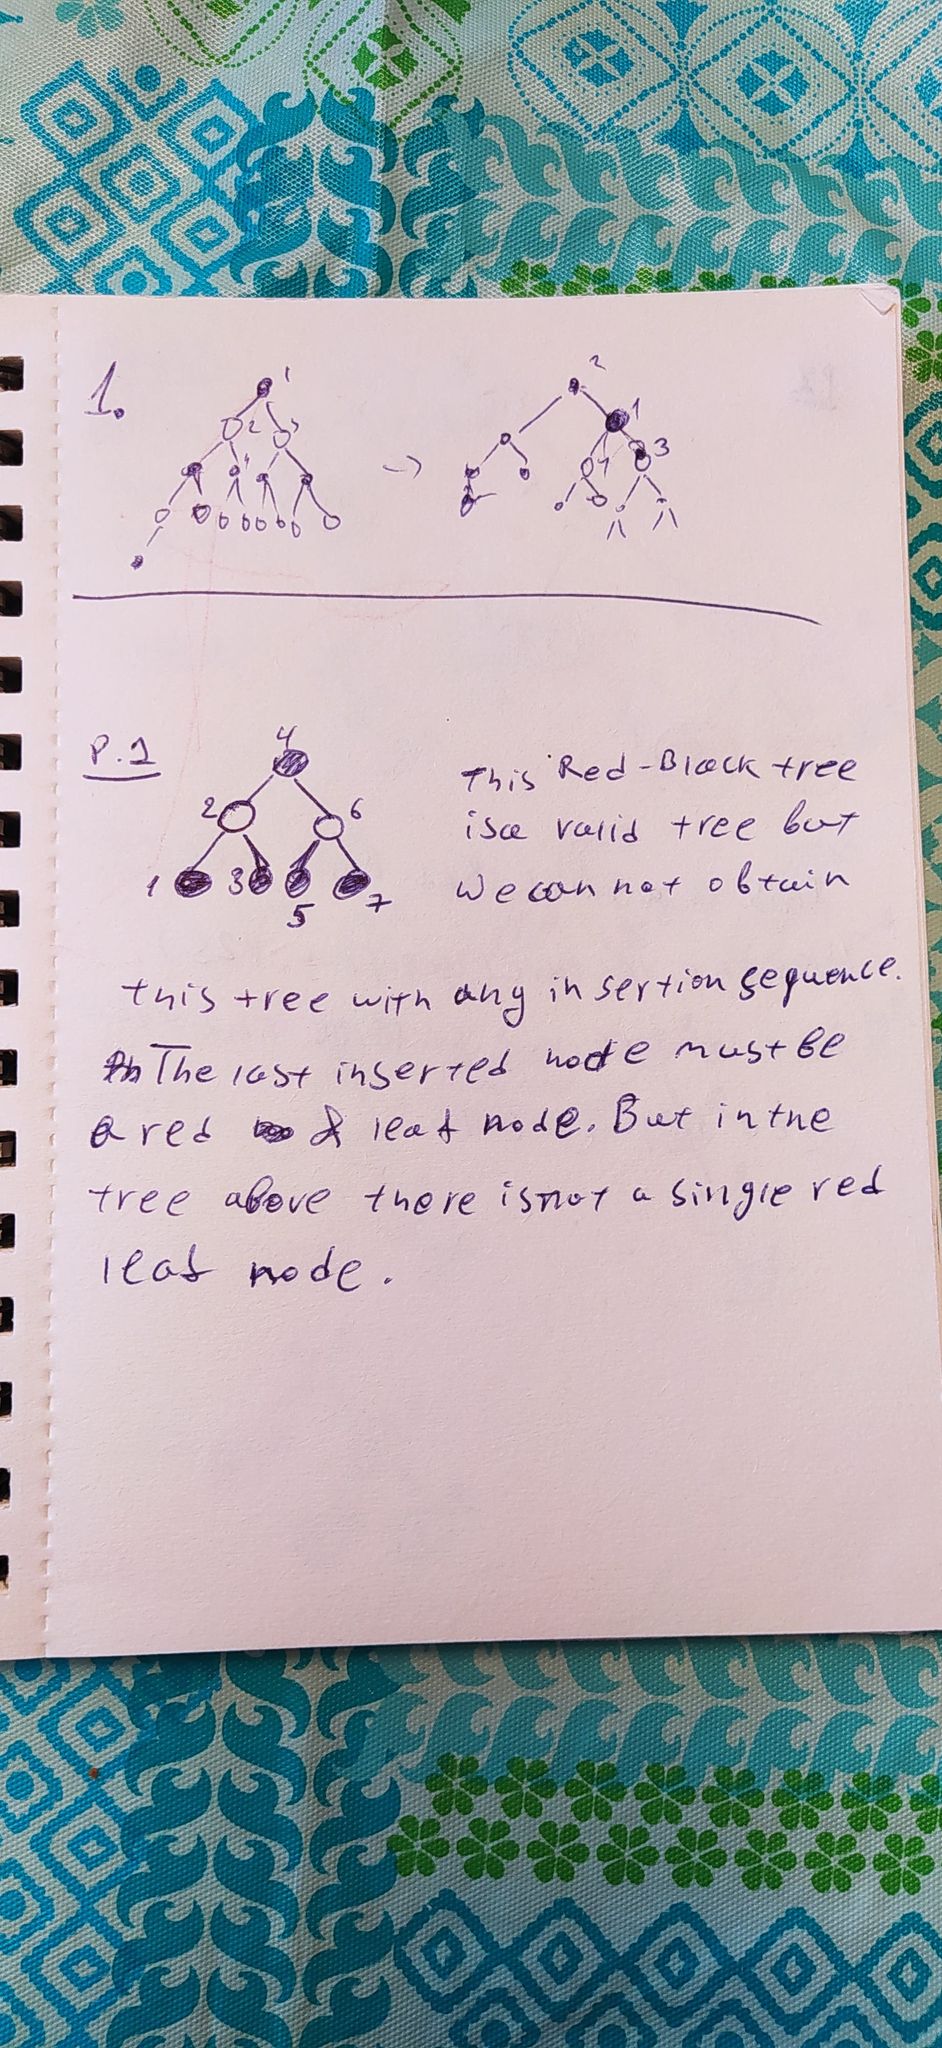 1.
1
2
3
4
2
1
4
3
P.1
4
2
6
1
3
5
7
This Red-Black tree
is a valid tree but
we can not obtain
this tree with any insertion sequence.
The last inserted node must be
a red leaf node. But in the
tree above there is not a single red
leaf node.